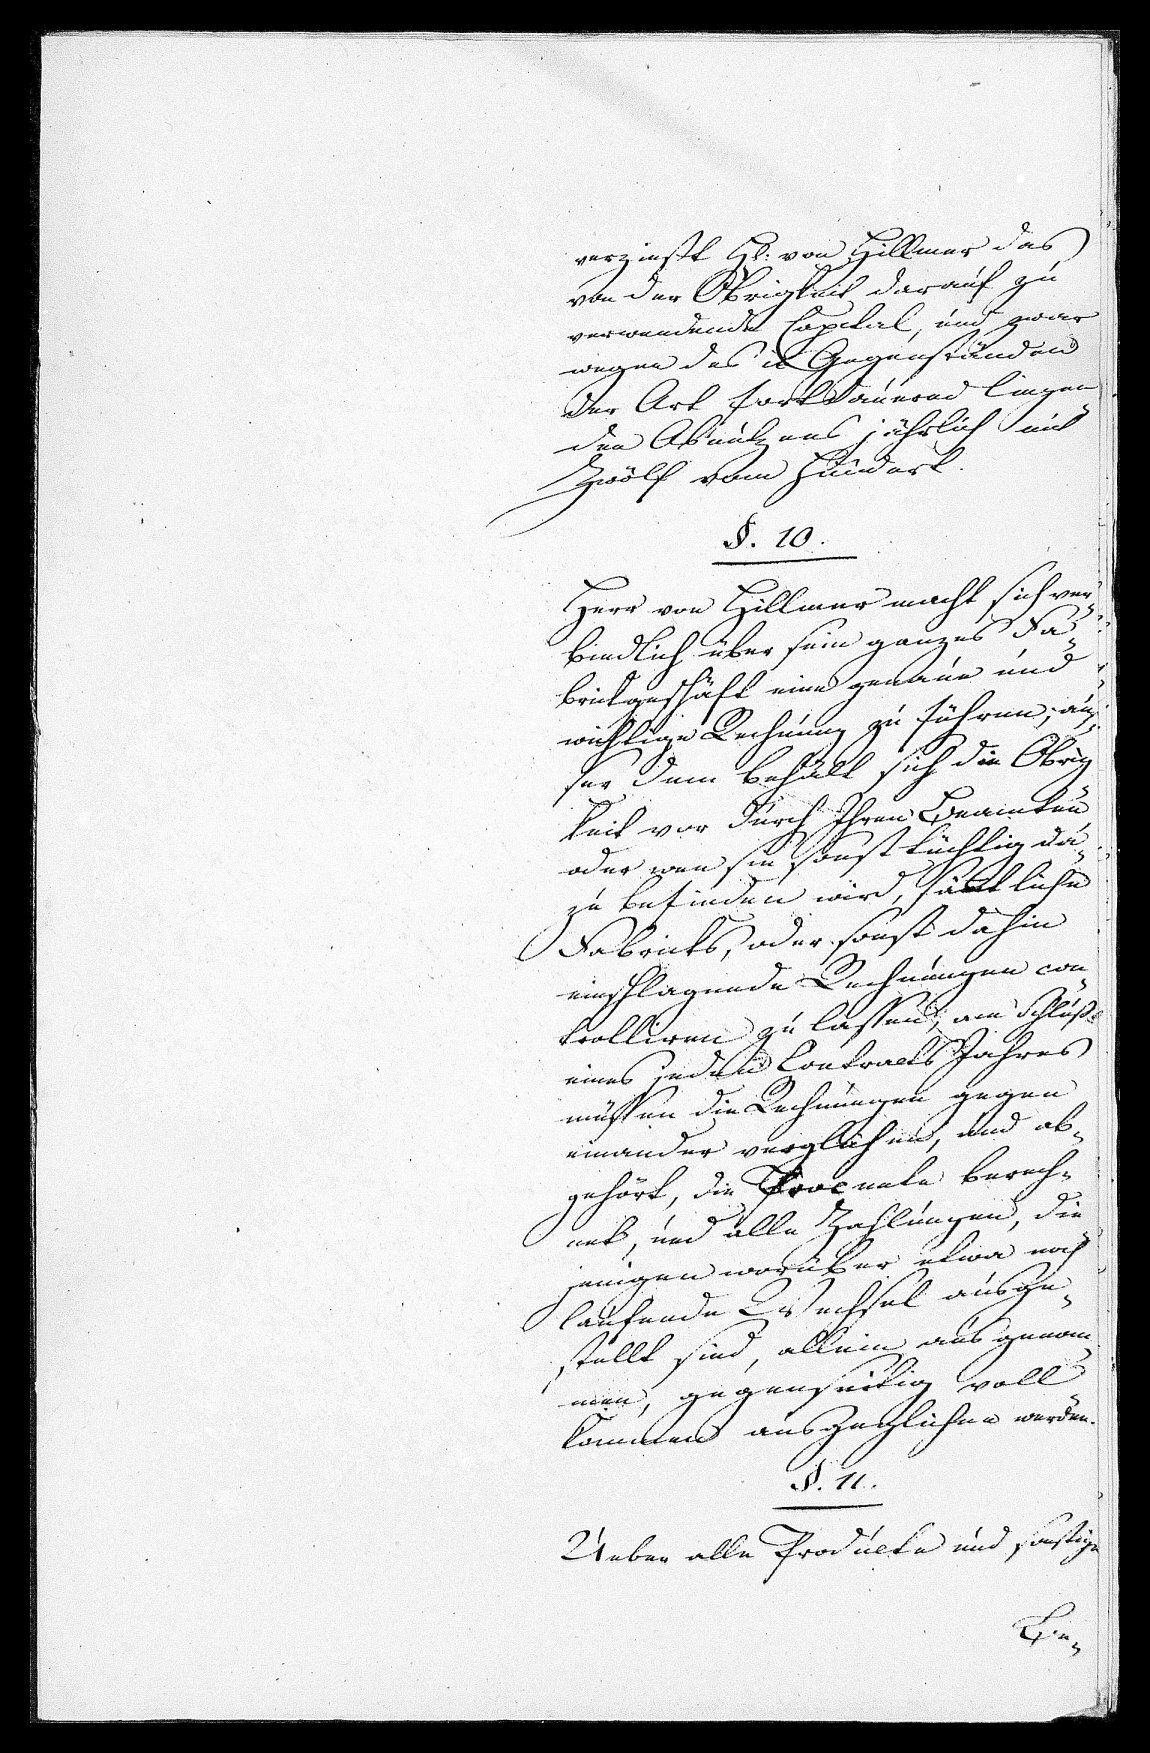 verzinßt H: von Hillmer das
von der Obrigkeit darauf zu
verwendende Capital, und zwar
wegen des in Gegenständen
der Art fortdauernd liegen¬
den Abnützens jährlich mit
Zwölf vom Hundert.
§. 10.
Herr von Hillmer macht sich ver¬
bindlich über sein ganzes Fa¬
brickgeschäft eine genaue und
richtige Rechnung zu führen; auß¬
ser dem behält sich die Obrig
keit vor durch Ihren Beamten
oder wen sie sonst tüchtig da¬
zu befinden wird, sämtliche
Fabricks, oder sonst dahin
einschlagende Rechnungen con¬
trolliren zu lassen; am Schluße
eines jeden Contracts Jahres
müssen die Rechnungen gegen
einander verglichen, und ab¬
gehört, die Procente berech¬
net, und alle Zahlungen, die
jenigen worüber etwa noch
laufende Wechsel ausge¬
stellt sind, allein ausgenom
men, gegenseitig voll
kommen ausgeglichen werden.
§. 11.
Ueber alle Producte und sonstige
Be¬